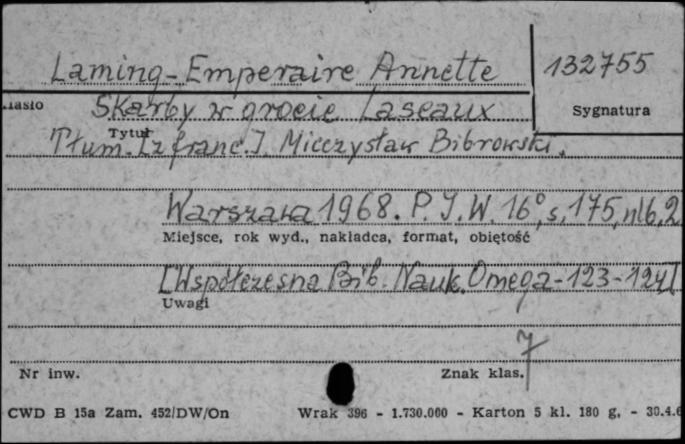 Laming-Emperaire Annette 132755
Hasło Skarby w grocie Laseaux Sygnatura
Tytuł
Tłum. [z franc.]. Mieczysław Bibrowski.
Warszawa 1968. P.I.W. 16°, s. 175, nlb. 2
Miejsce, rok wyd., nakładca, format, objętość
[Współczesna Bib. Nauk. Omega-123-124]
Uwagi
7
Nr inw. Znak klas.
CWD B 15a Zam. 452/DW/On Wrak 396 - 1.730.000 - Karton 5 kl. 180 g. - 30.4.6